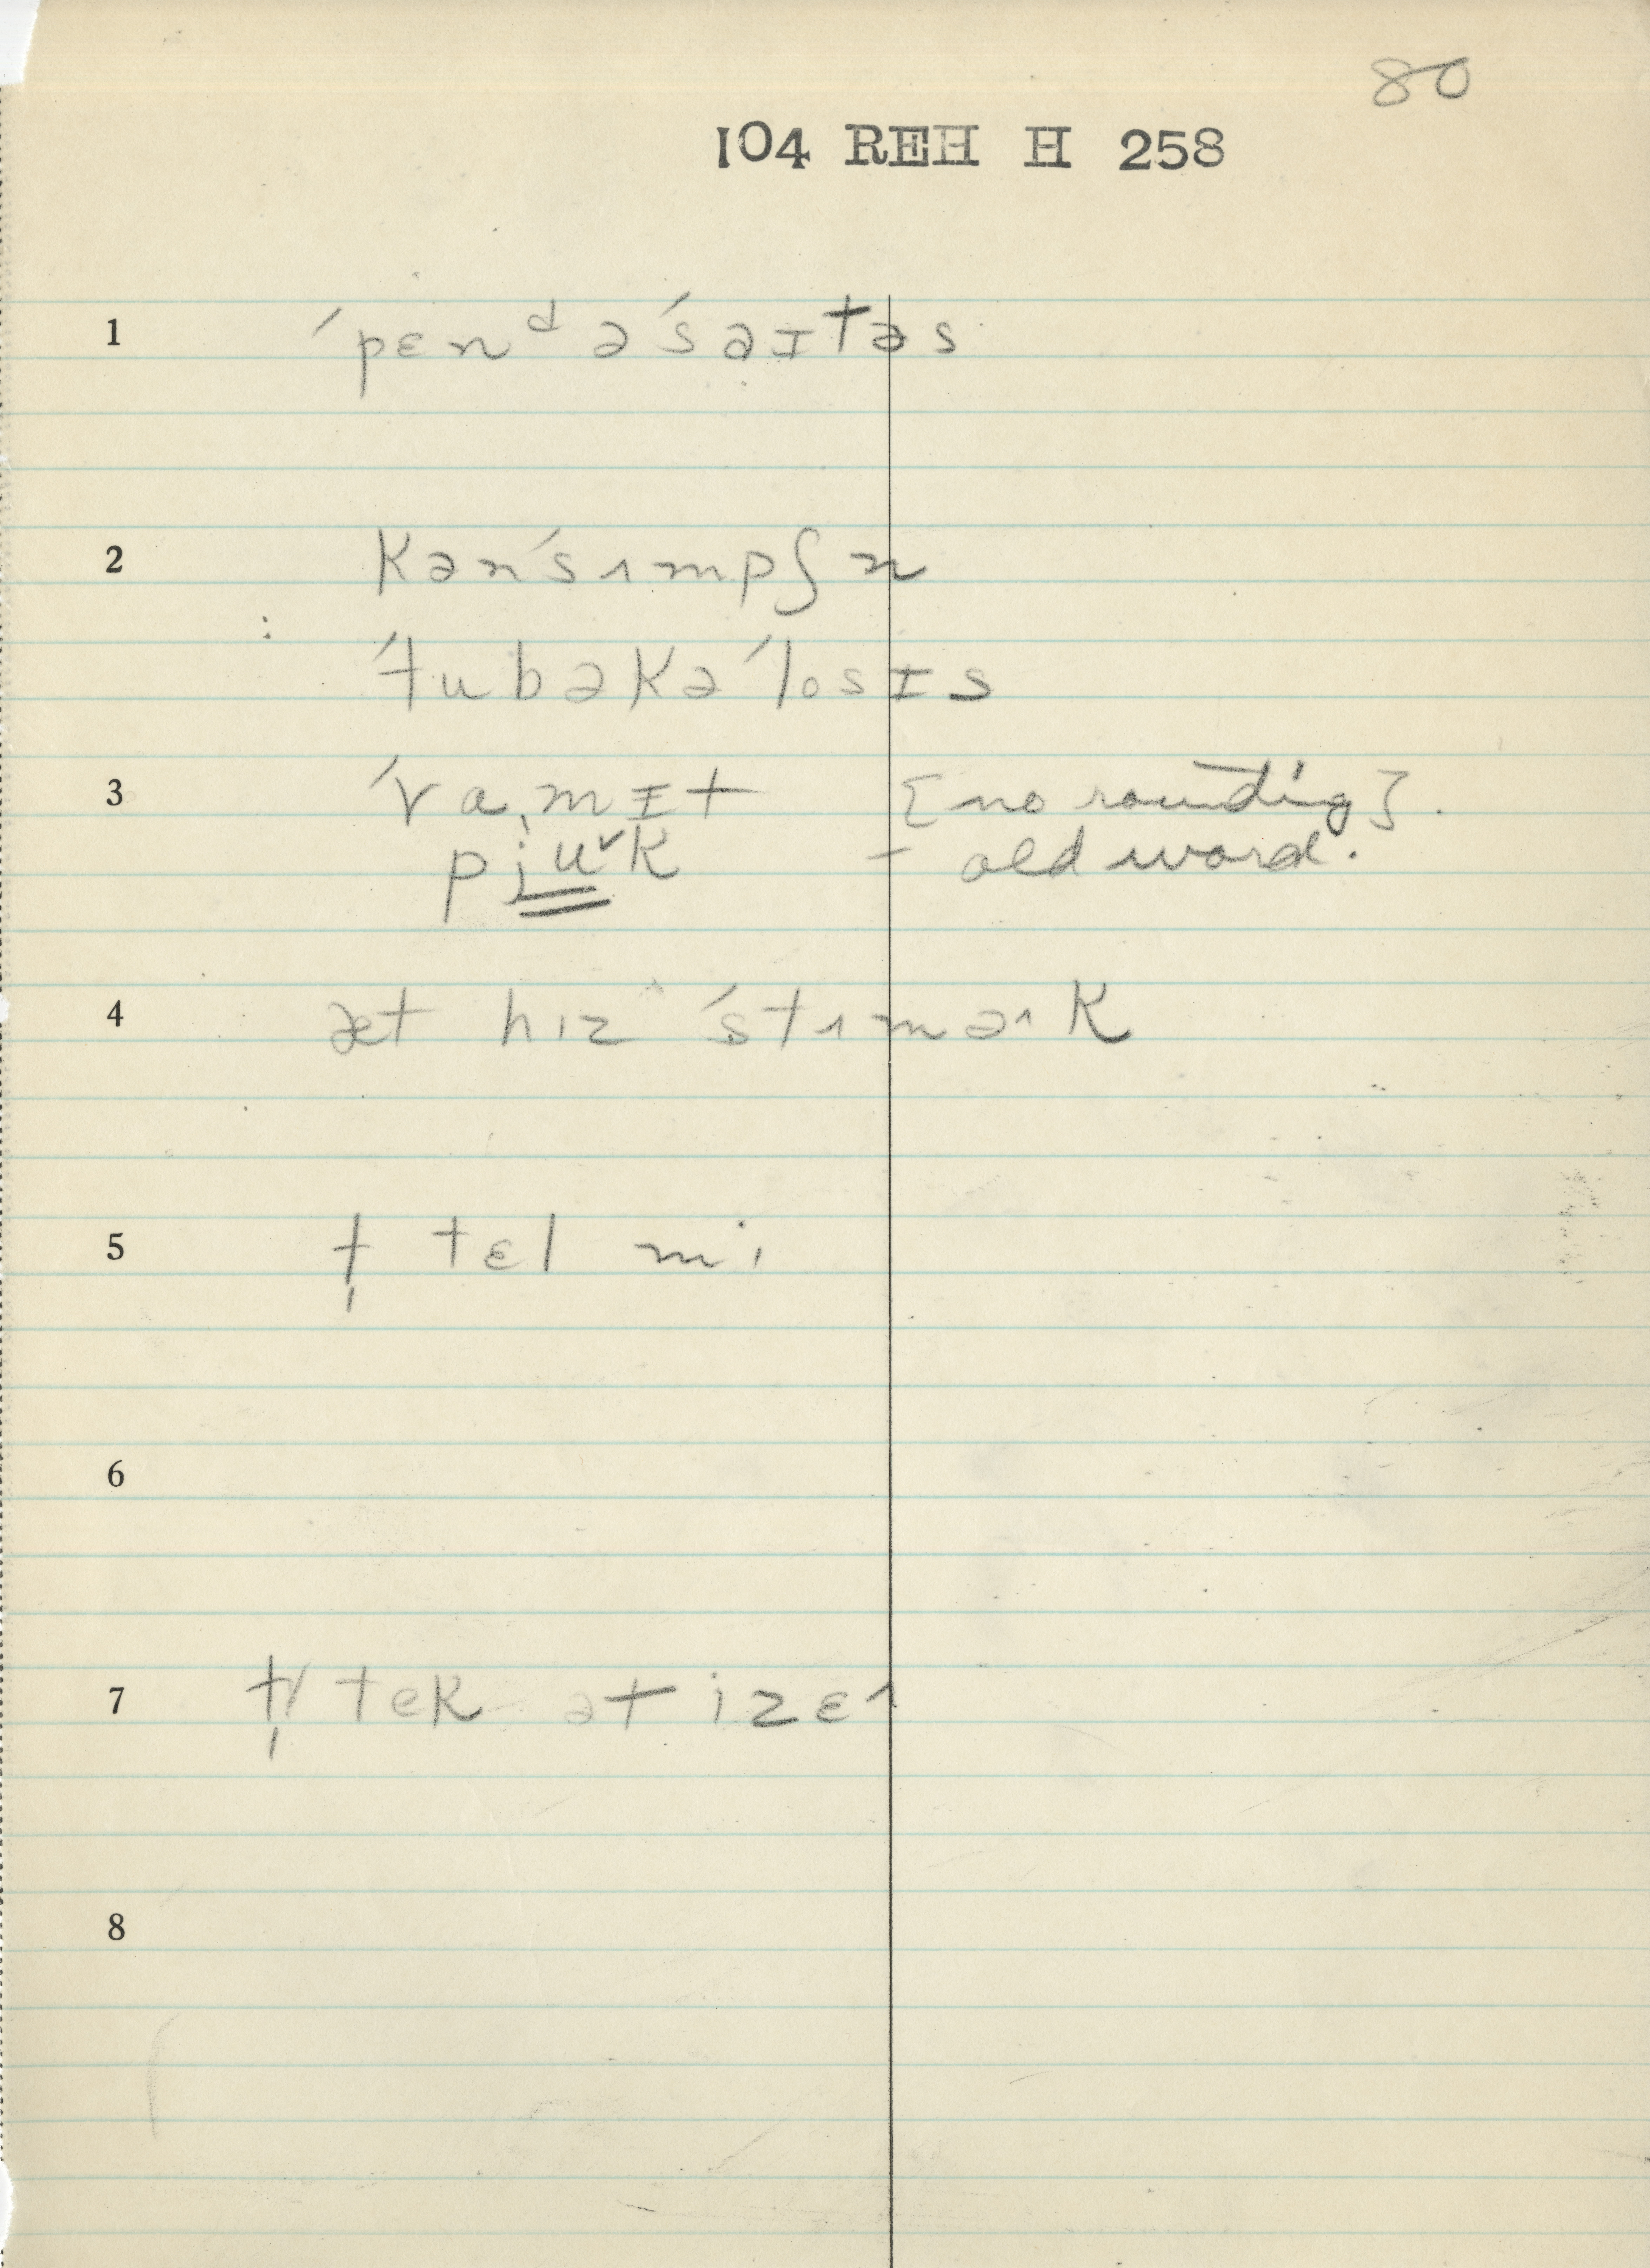 80
104 REH H 258
1 ˈpɛnᵈəˈsaɪtəs
2 kənˈsʌmpʃn
ˈtubəkəˈlosɪs
3 ˈvɑ̩mɪt [no rounding].
pi̯u˅k – old word.
4 æt hɪz ˈstʌmək
5 ‡ tɛl mi
6
7 ‡ tek ət izɛ˄
8